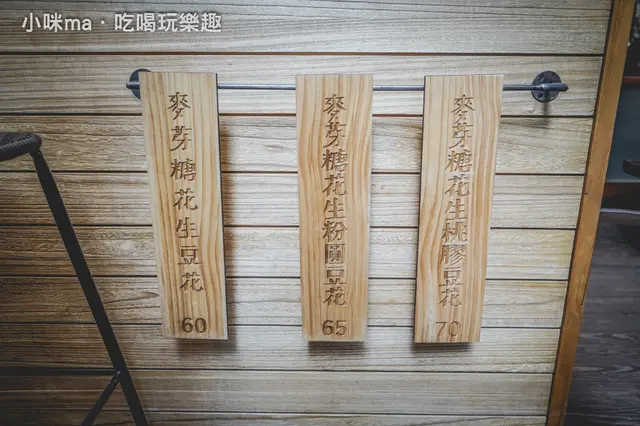 小咪ma．吃喝玩樂趣
麥芽糖花生豆花
60
麥芽糖花生粉圓豆花
65
麥芽糖花生桃膠豆花
70